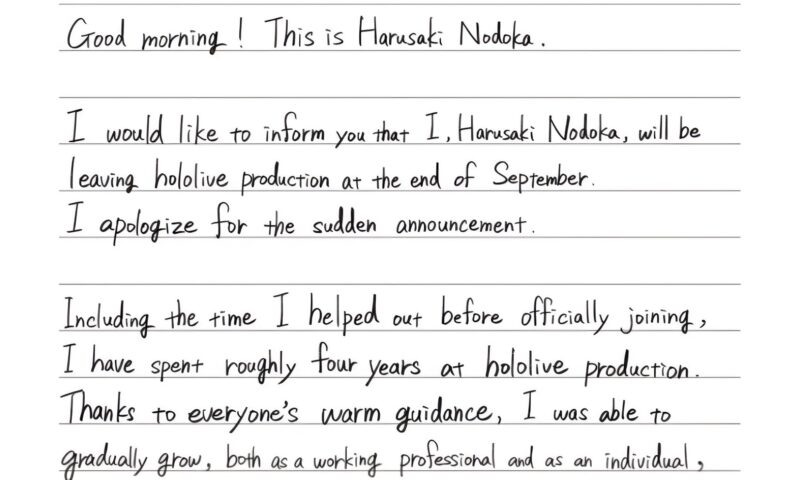 Good morning! This is Harusaki Nodoka.
I would like to inform you that I, Harusaki Nodoka, will be
leaving hololive production at the end of September.
I apologize for the sudden announcement.
Including the time I helped out before officially joining,
I have spent roughly four years at hololive production.
Thanks to everyone's warm guidance, I was able to
gradually grow, both as a working professional and as an individual,